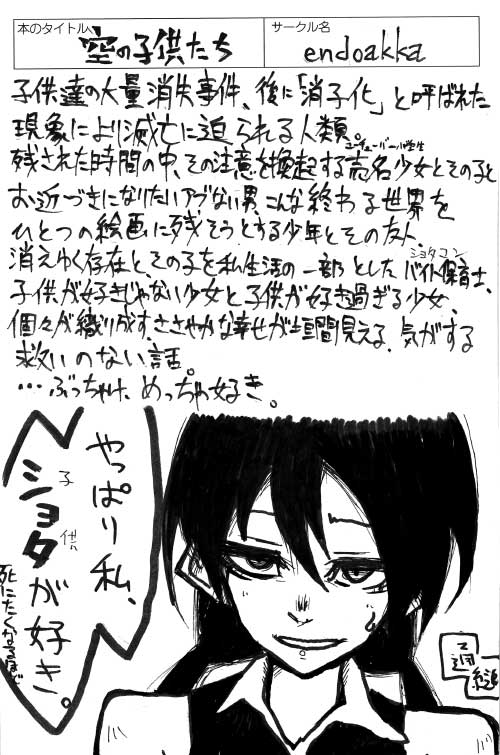 本のタイトル
空の子供たち
サークル名
endoakka
子供達の大量消失事件、後に「消子化」と呼ばれた
現象により滅亡に迫られる人類。
残された時間の中、その注意を換起する売名少女とその子と
お近づきになりたいアブない男、こんな終わる世界を
ひとつの絵画に残そうとする少年とその友人、
ショタコン
消えゆく存在と、その子を私生活の一部としたバイト保育士、
子供が好きじゃない少女と子供が好き過ぎる少女、
個々が織り成す、ささやかな幸せが垣間見える、気がする
救いのない話。
…ぶっちゃけ、めっちゃ好き。
やっぱり私、
子供
ショタが好き。
死にたくなるほど